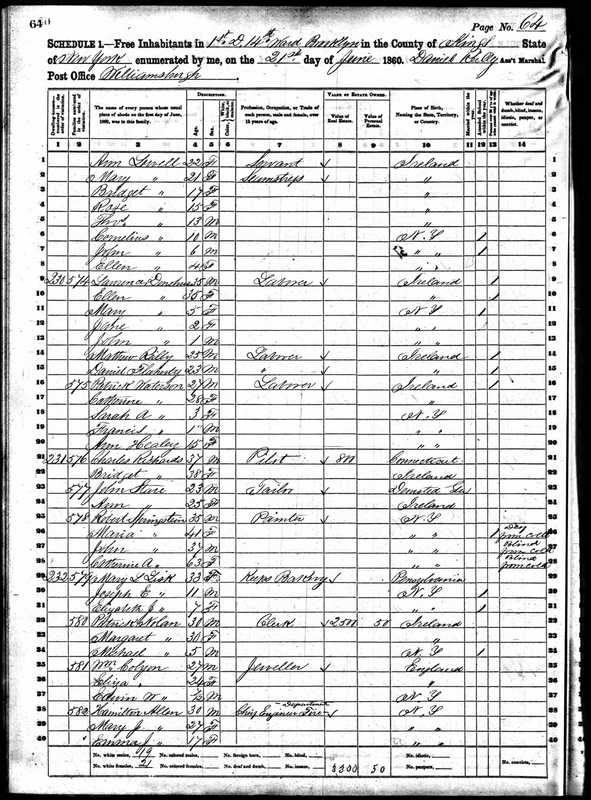 64
Page No. 64
SCHEDULE 1.—Free Inhabitants in 1st D. 14th Ward Brooklyn in the County of Kings State
of New York enumerated by me, on the 21st day of June 1860. Daniel Ass't Marshal.
Post Office Williamsburgh
DESCRIPTION. VALUE OF ESTATE OWNED.
The name of every person whose usual place of abode on the first day of June, 1860, was in this family. Age. Sex. Profession, Occupation, or Trade of each person, male and female, over 15 years of age. Value of Real Estate. Value of Personal Estate. Place of Birth, Naming the State, Territory, or Country. Married within the year. Attended School within the year. Whether deaf and dumb, blind, insane, idiotic, pauper, or convict.
1 2 3 4 5 6 7 8 9 10 11 12 13 14
1 Ann 22 F Servant Ireland
2 Mary " 21 F Seamstress "
3 Bridget " 17 F "
4 Rose " 15 F "
5 Thos " 13 M "
6 Cornelius " 10 M N.Y 1
7 John " 6 M " " 1
8 Ellen " 4 F " "
9 230 574 35 M Laborer Ireland 1
10 Ellen " 35 F " 1
11 Mary " 5 F N.Y 1
12 Jane " 2 F " "
13 John " 1 M " "
14 Mathew Reilly 25 M Laborer Ireland 1
15 Daniel Flaherty 23 M " " 1
16 575 Patrick Waterson 27 M Laborer Ireland 1
17 Catherine " 28 F "
18 Sarah A " 3 F N.Y
19 Francis " M " "
20 Ann Healey 15 F " "
21 231 576 Charles Richards 37 M Pilot 800 Connecticut
22 Bridget " 38 F Ireland
23 577 John 23 M Tailor
24 Ann " 25 F Ireland
25 578 Robert 35 M N.Y
26 Maria " 41 F " " 1 from cold
27 John " 37 M " " Blind from cold
28 Catherine A " 63 F " " Blind from cold
29 232 579 Mary L Lusk 33 F Keeps Bakery Pennsylvania
30 Joseph E " 11 M N.Y 1
31 Elizabeth J " 7 F " " 1
32 580 Patrick Nolan 30 M Clerk 2500 50 Ireland
33 Margaret " 30 F "
34 Michael " 5 M N.Y 1
35 581 Wm Colyon 27 M Jeweller England
36 Eliza " 24 F "
37 Edwin W " M N.Y
38 582 Hamilton Allen 30 M Chief Engineer Fire Department N.Y
39 Mary J " 27 F " "
40 Emma J " 17 F " "
No. white males, 19 No. colored males, No. foreign born, No. blind, No. idiotic, No. convicts,
No. white females, 21 No. colored females, No. deaf and dumb, No. insane, 3300 50 No. paupers,